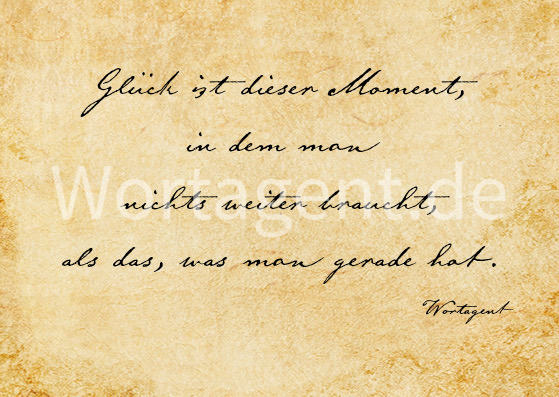 Glück ist dieser Moment,
in dem man
nichts weiter braucht,
als das, was man gerade hat.
Wortagent
Wortagent.de